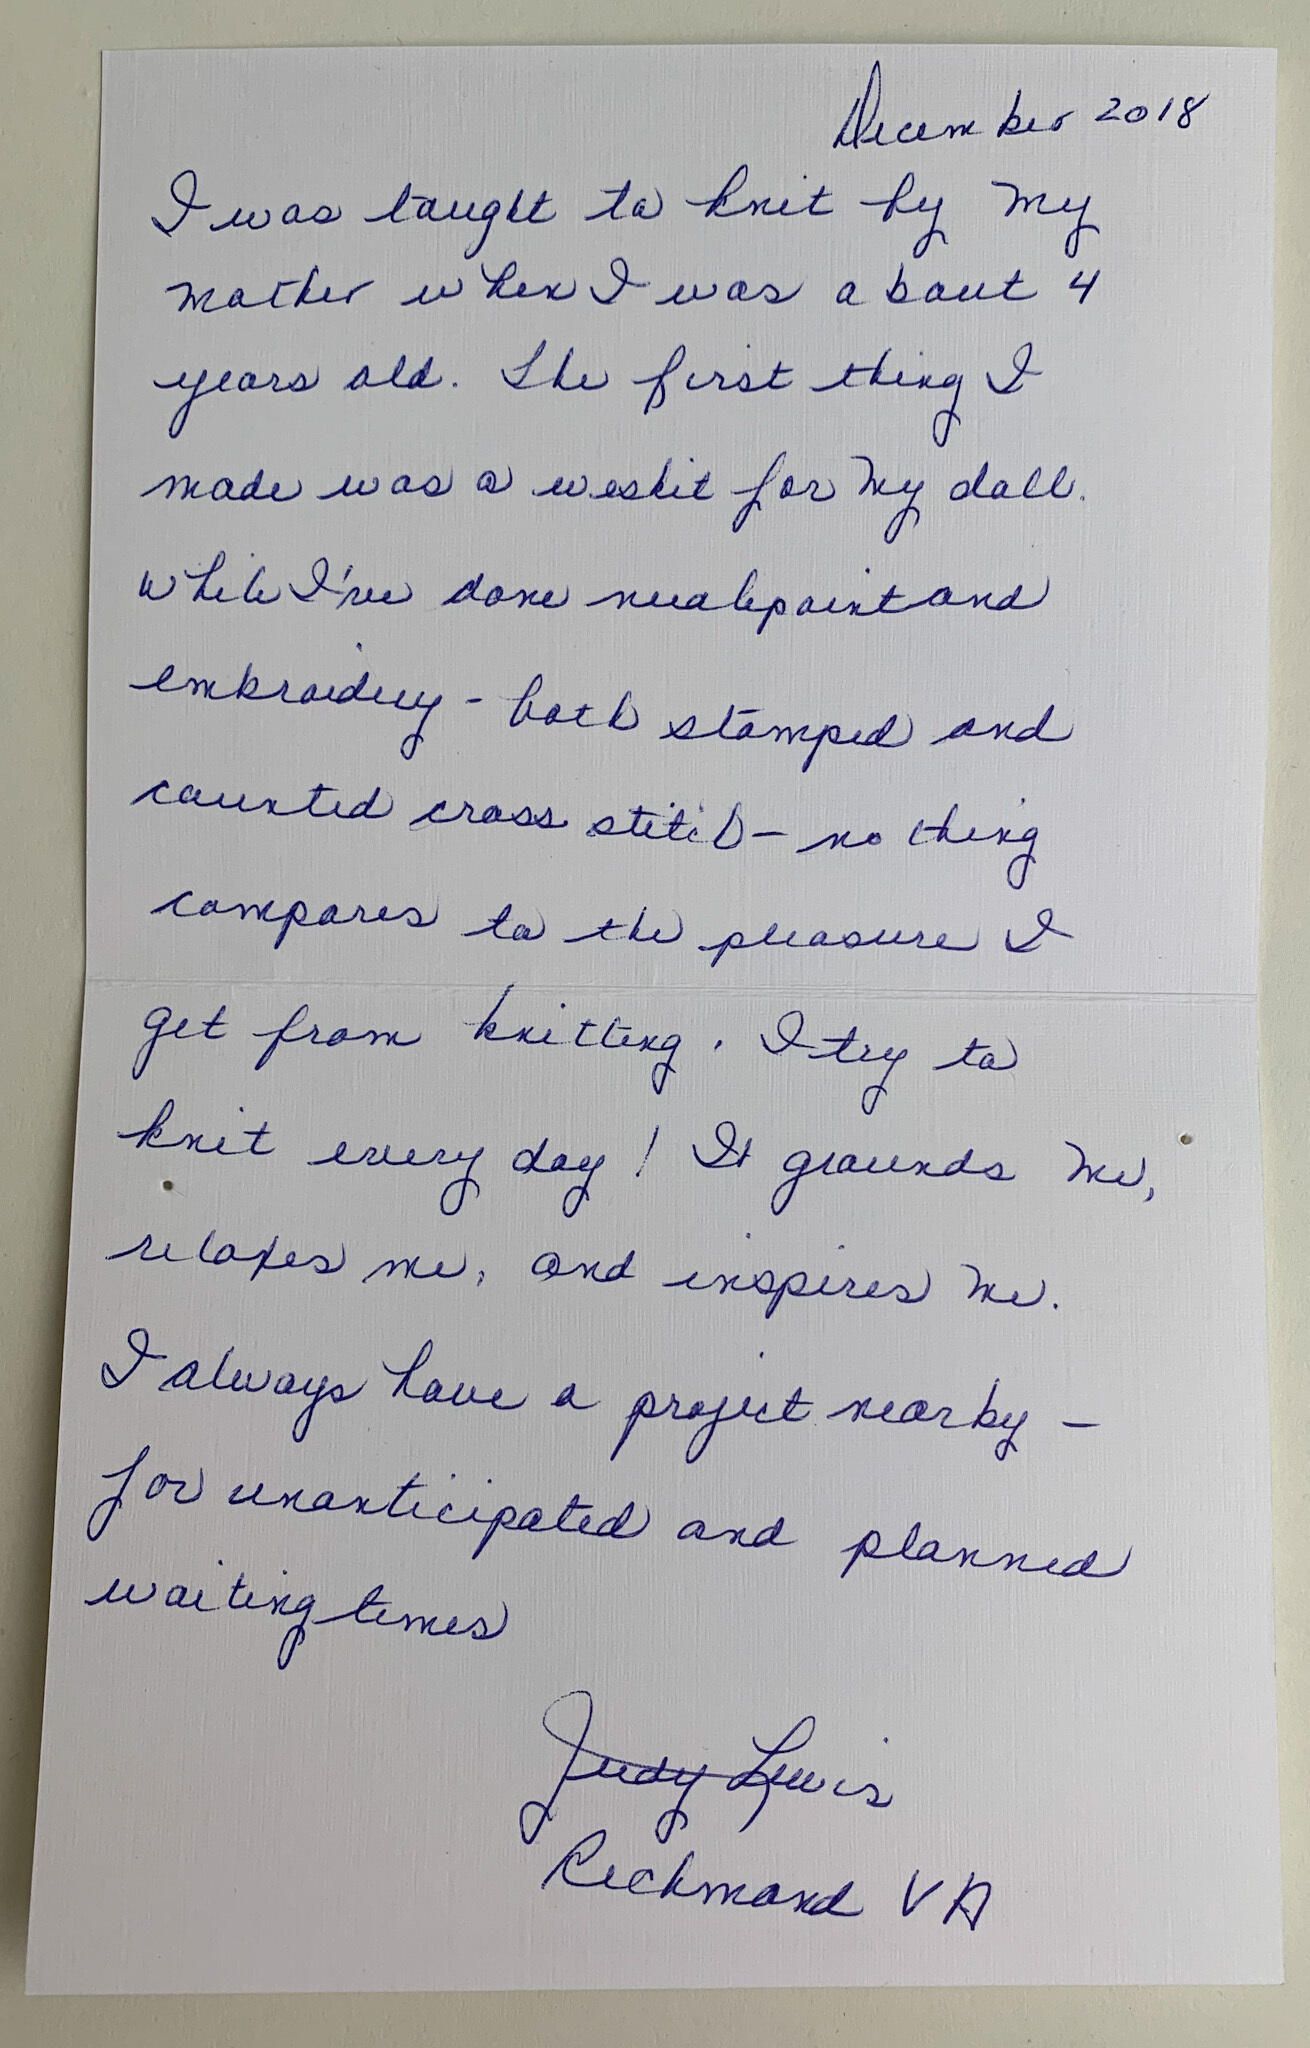 December 2018
I was taught to knit by my
mother when I was about 4
years old. The first thing I
made was a weskit for my doll.
While I've done needlepoint and
embroidery - both stamped and
counted cross stitch - nothing
compares to the pleasure I
get from knitting. I try to
knit every day! It grounds me,
relaxes me, and inspires me.
I always have a project nearby -
for unanticipated and planned
waiting times
Judy Lewis
Richmond VA